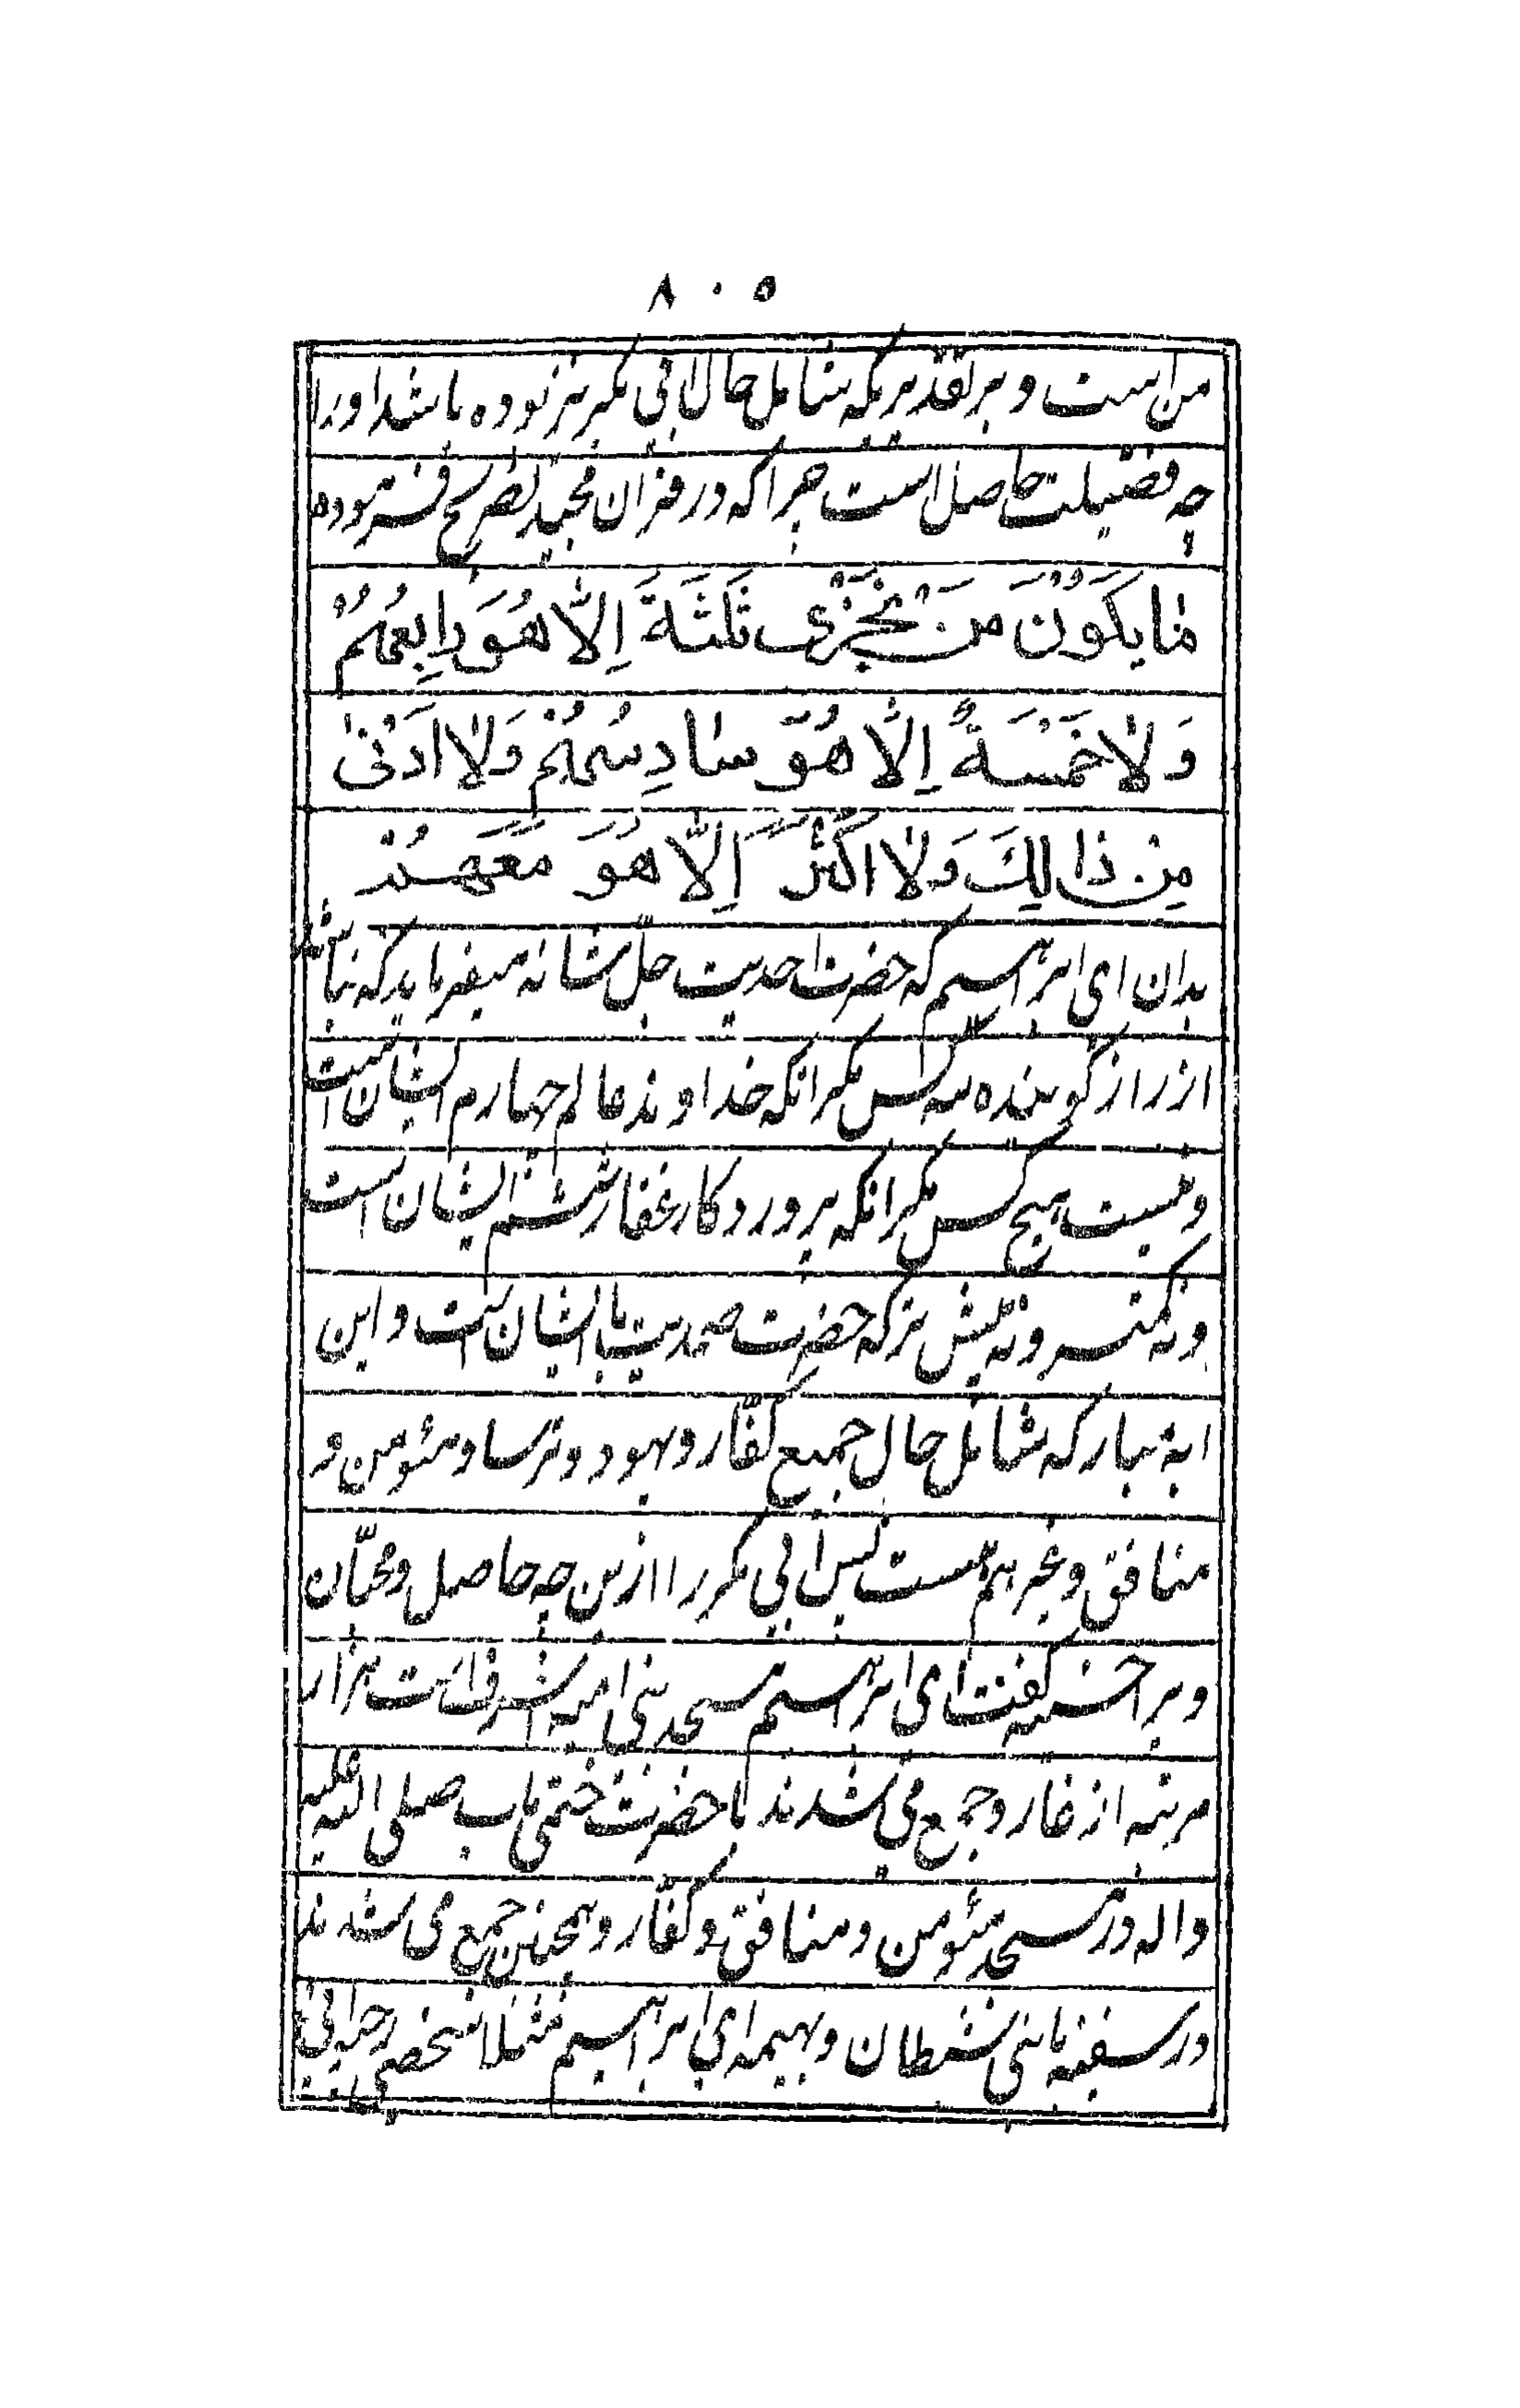 ۸۰۵
من است و بر تقدیریکه شامل حال ابی بکر نیز بوده باشد او را
چه فضیلت حاصل است چرا که در قران مجید بصریح فرموده
مٰا یَکُوْنَ مِنْ نَجْوٰی ثَلٰثَةَ اِلّٰا هُوَ رٰابِعُهُمْ
وَ لٰا خَمْسَةٌ اِلّٰا هُوَ سٰادِسُهُمْ وَلٰا اَدْنٰی
مِنْ ذٰالِكَ وَلٰا اَكْثَرَ اِلّٰا هُوَ مَعَهُمْ
بدان ای ابراهیم که حضرت احدیت جل شانه میفرماید که نباشد
از راز کوینده سه کس مکر انکه خداوند عالم چهارم ایشان است
و نیست پنج کس مکر انکه پروردکار غفار ششم ایشان است
و نه کمتر و نه بیش تر که حضرت صمدیت با ایشان است و این
ایهٔ مبارکه شامل حال جمیع کفّار و یهود و ترسا و مئومن و
منافق و غیر هم هست پس ابی بکر را ازین چه حاصل و محبّان
ویرا حسنیه کفت ای ابراهیم مسجد بنی امیه اشرف است هزار
مرتبه از غار و جمع می شدند با حضرت ختمی ماب صلی الله علیه
و اله در مسجد مئومن و منافق و کفّار و همچنین جمع می شدند
در سفینه با نبی شیطان و بهیمه ای ابراهیم مثلا شخصی